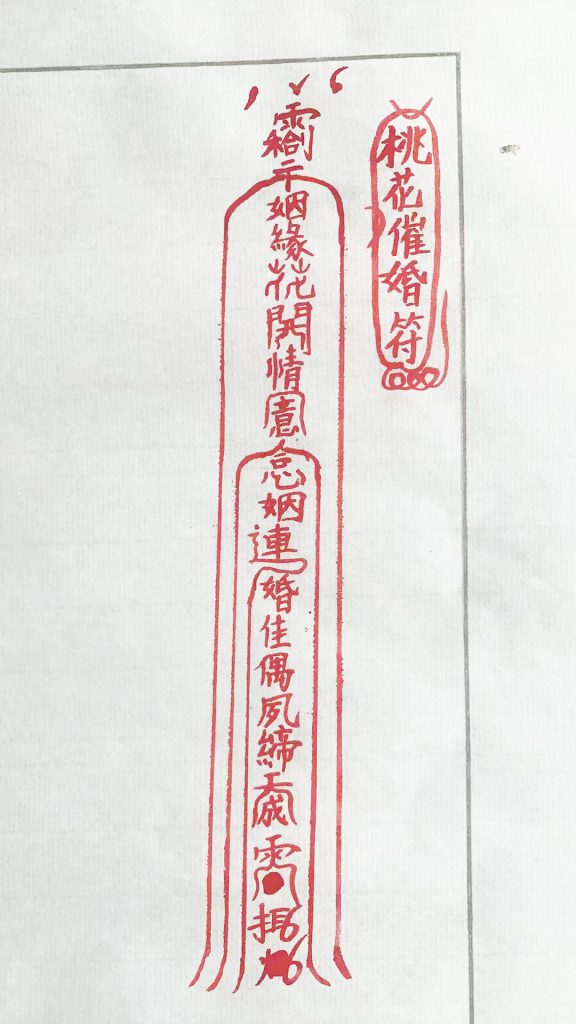 桃花催婚符
姻緣花開情意念姻連婚佳偶夙締天成